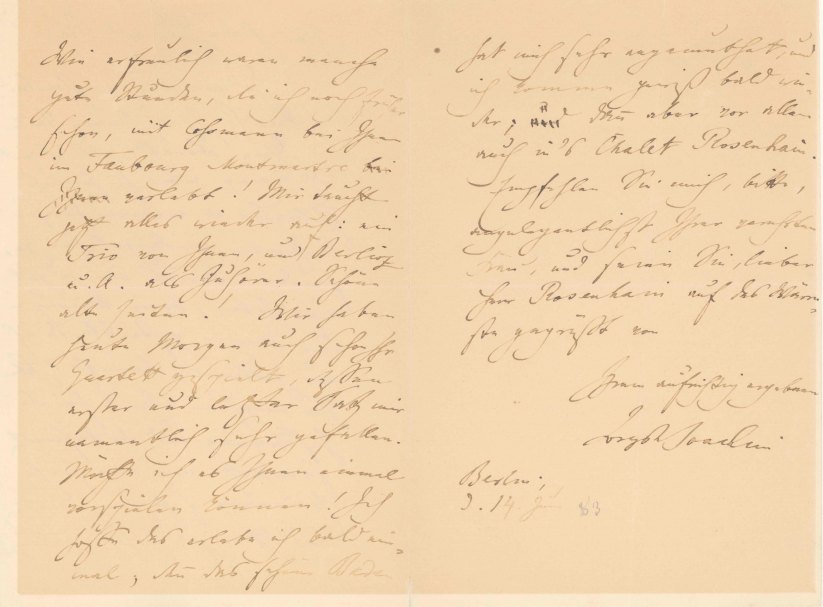 Wie erfreulich waren manche
gute Stunden, die ich noch früher
schon, mit Cossmann bei Ihnen
im Faubourg Montmartre bei
Ihnen verlebt! Mir taucht
jetzt alles wieder auf: ein
Trio von Ihnen, und Berlioz
u. A. als Zuhörer. Schöne
alte Zeiten! Wir haben
heute Morgen auch
Quartett gespielt, dessen
erster und letzter Satz mir
namentlich sehr gefallen.
Möchte ich es Ihnen einmal
vorspielen können! Ich
hoffe das erlebe ich bald ein-
mal, denn das schöne Baden
hat mich sehr angemuthet, und
ich komme gewiß bald wie-
der; dann aber vor allem
auch in's Chalet Rosenhain.
Empfehlen Sie mich, bitte,
angelegentlichst Ihrer verehrten
Frau, und seien Sie, lieber
Herr Rosenhain auf das Wärm-
ste gegrüßt von
Ihrem aufrichtig ergebenen
Joseph Joachim
Berlin,
d. 14. 83